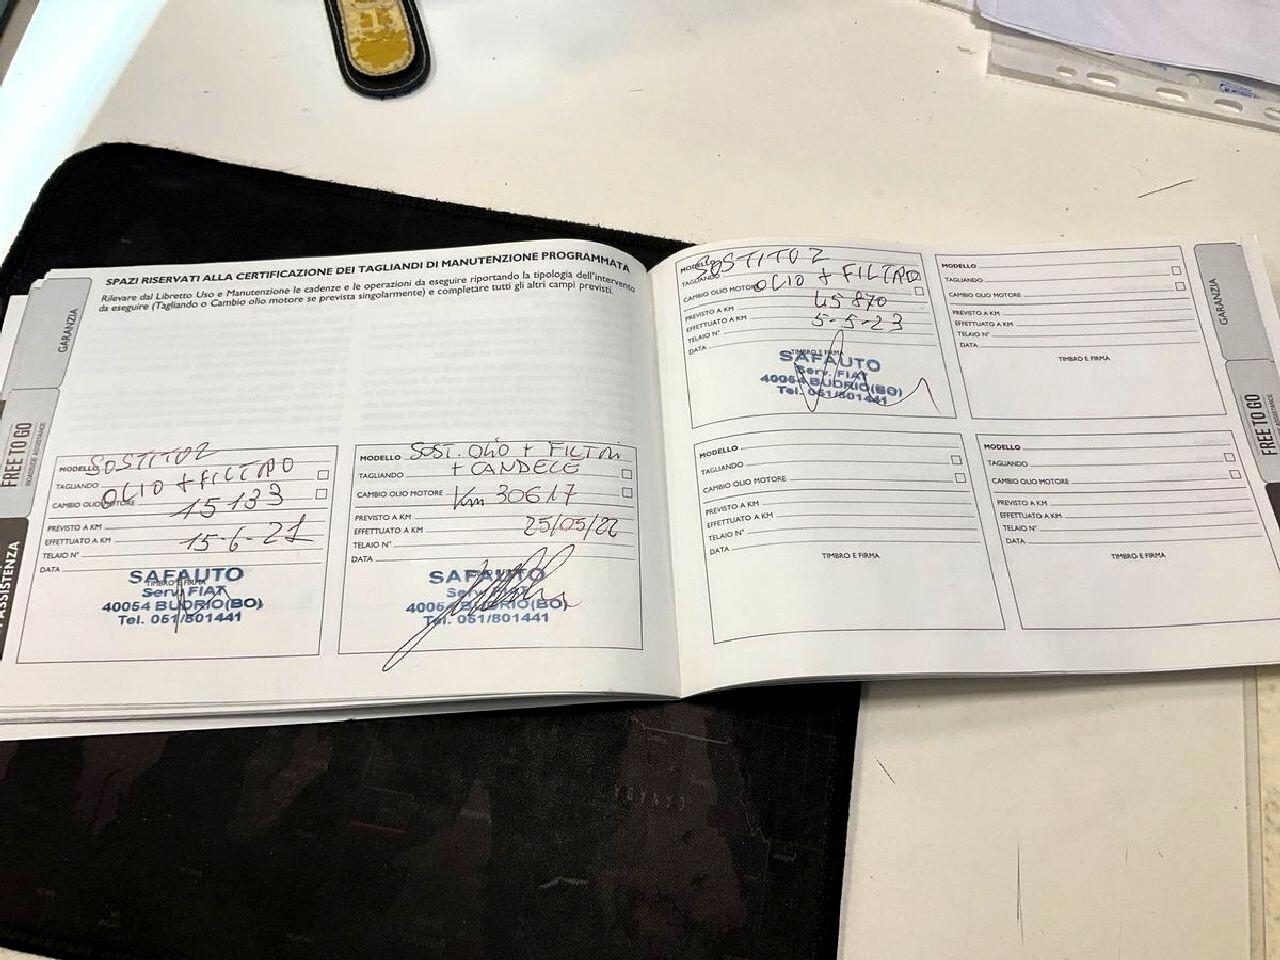 SPAZI RISERVATI ALLA CERTIFICAZIONE DEI TAGLIANDI DI MANUTENZIONE PROGRAMMATA
Rilevare dal Libretto Uso e Manutenzione le cadenze e le operazioni da eseguire riportando la tipologia dell'intervento
da eseguire (Tagliando o Cambio olio motore se prevista singolarmente) e completare tutti gli altri campi previsti.
GARANZIA
FREE TO GO
ROADSIDE ASSISTANCE
ASSISTENZA
MODELLO SOSTITUZ
TAGLIANDO OLIO + FILTRO
CAMBIO OLIO MOTORE 15133
PREVISTO A KM
EFFETTUATO A KM 15-6-21
TELAIO N°
DATA
TIMBRO E FIRMA
SAFAUTO
Serv. FIAT
40054 BUDRIO (BO)
Tel. 051/801441
MODELLO SOST. OLIO + FILTRI
TAGLIANDO + CANDELE
CAMBIO OLIO MOTORE Km 30617
PREVISTO A KM
EFFETTUATO A KM 25/05/22
TELAIO N°
DATA
SAFAUTO
Serv. FIAT
40054 BUDRIO (BO)
Tel. 051/801441
MODELLO SOSTITUZ
TAGLIANDO OLIO + FILTRO
CAMBIO OLIO MOTORE
PREVISTO A KM 45870
EFFETTUATO A KM 5-5-23
TELAIO N°
DATA
TIMBRO E FIRMA
SAFAUTO
Serv. FIAT
40054 BUDRIO (BO)
Tel. 051/801441
MODELLO
TAGLIANDO
CAMBIO OLIO MOTORE
PREVISTO A KM
EFFETTUATO A KM
TELAIO N°
DATA
TIMBRO E FIRMA
MODELLO
TAGLIANDO
CAMBIO OLIO MOTORE
PREVISTO A KM
EFFETTUATO A KM
TELAIO N°
DATA
TIMBRO E FIRMA
MODELLO
TAGLIANDO
CAMBIO OLIO MOTORE
PREVISTO A KM
EFFETTUATO A KM
TELAIO N°
DATA
TIMBRO E FIRMA
GARANZIA
FREE TO GO
ROADSIDE ASSISTANCE